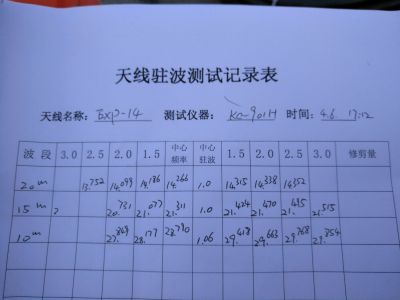 天线驻波测试记录表
天线名称: Exp-14 测试仪器: KC-901H 时间: 4.6 17:12
波段 3.0 2.5 2.0 1.5 中心频率 中心驻波 1.5 2.0 2.5 3.0 修剪量
20m 13.752 14.099 14.186 14.266 1.0 14.315 14.338 14.352
15m 20.731 21.077 21.311 1.0 21.424 21.470 21.495 21.515
10m 27.849 28.177 28.790 1.06 29.418 29.663 29.768 29.854